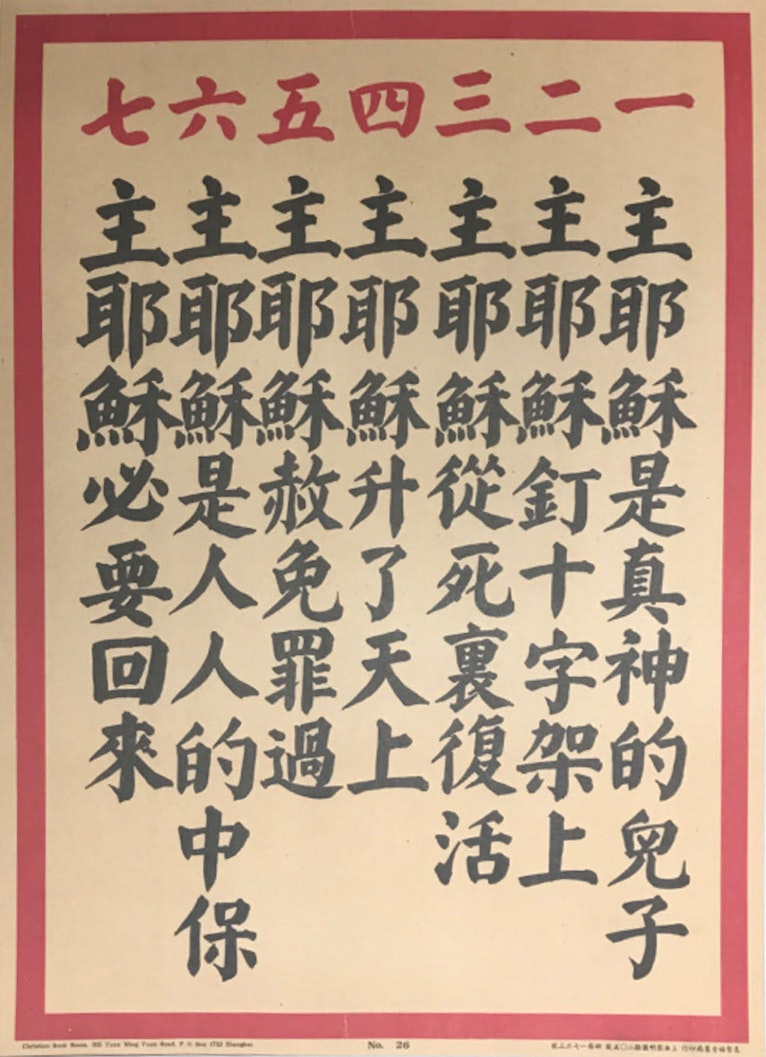 一二三四五六七
主耶穌是真神的兒子
主耶穌釘十字架上
主耶穌從死裏復活
主耶穌升了天上
主耶穌赦免罪過
主耶穌是人人的中保
主耶穌必要回來
Christian Book Room, Yuen Ming Yuen Road, P. O. Box Shanghai.
No. 26